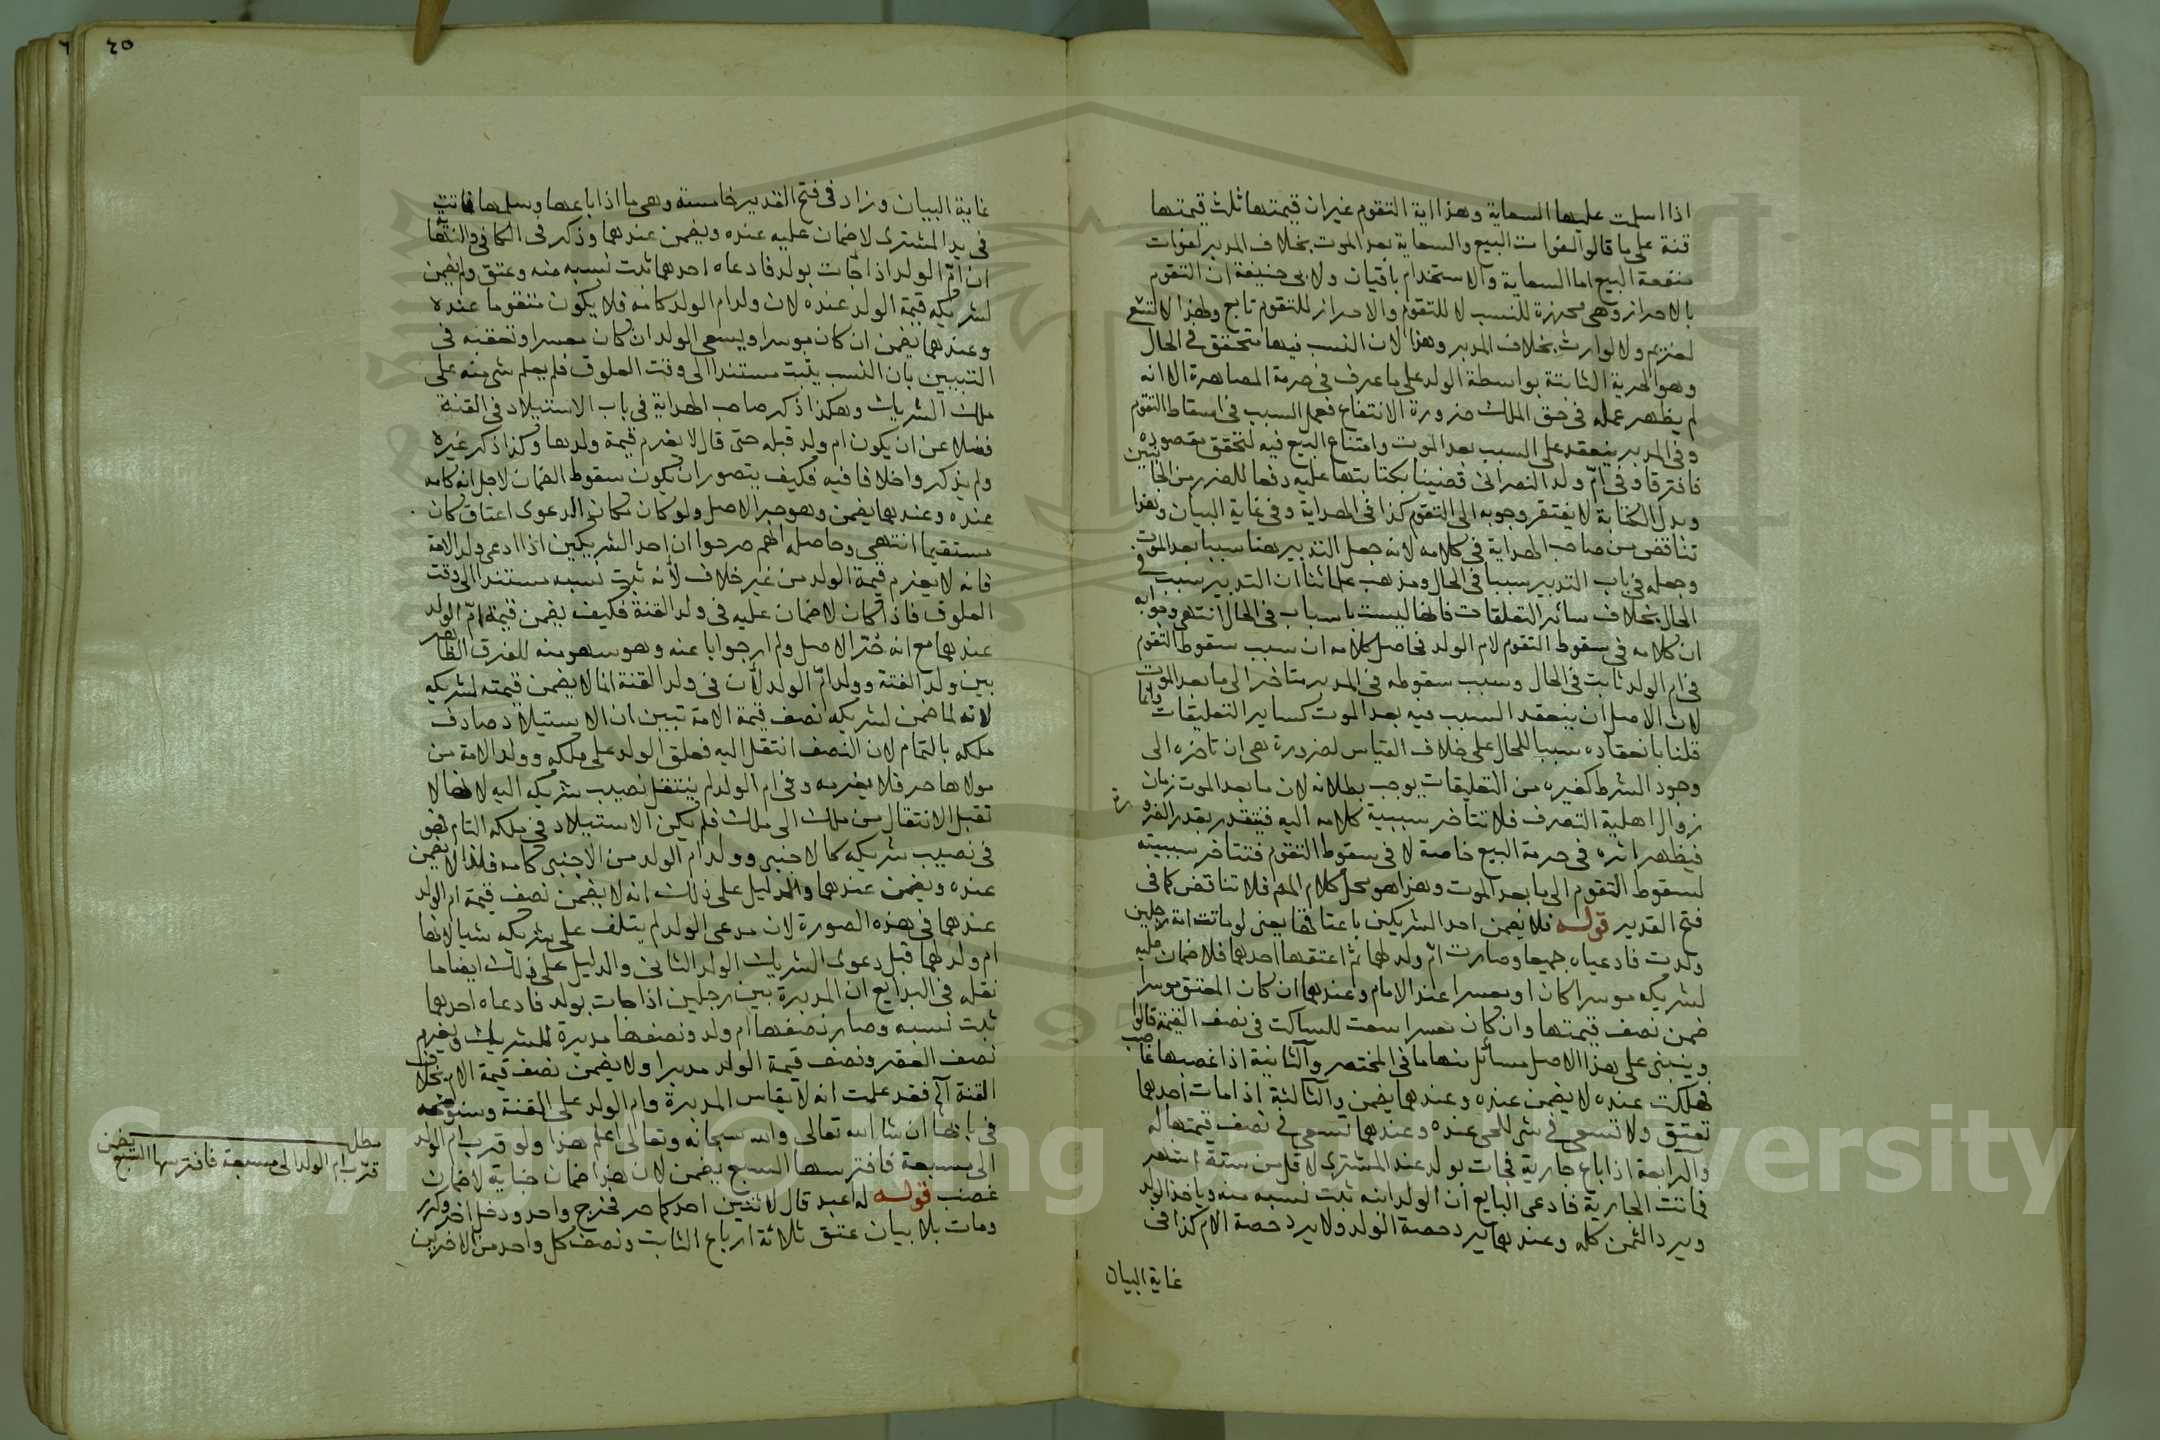 اذا اسلمت عليها السعاية وهذا اية التقوم غير ان قيمتها ثلث قيمتها
قنة على ما قالوا لفوات البيع والسعاية بعد الموت بخلاف المدبر لفوات
منفعة البيع اما السعاية والاستخدام باقيان ولابى حنيفة ان التقوم
بالاحراز وهى محرزة للنسب لا للتقوم والاحراز للتقوم تابع ولهذا لا تسعى
لغريم ولا لوارث بخلاف المدبر وهذا لان السبب فيها متحقق فى الحال
وهو الحرية الثابتة بواسطة الولد على ما عرف فى حرمة المصاهرة الا انه
لم يظهر عمله فى حق الملك ضرورة الانتفاع فعمل السبب فى اسقاط التقوم
وفى المدبر ينعقد على السبب بعد الموت وامتناع البيع فيه لتحقق مقصوده
فافترقا وفى ام ولد النصرانى قضينا بكتابتها عليه دفعا للضرر من الجانبين
وبدل الكتابة لا يفتقر وجوبه الى التقوم كذا فى الهداية وفى غاية البيان وهذا
تناقض من صاحب الهداية فى كلامه لانه جعل التدبير هنا سببا بعد الموت
وجعله فى باب التدبير سببا فى الحال ومذهب علمائنا ان التدبير سبب فى
الحال بخلاف سائر التعلقات فانها ليست باسباب فى الحال انتهى وجوابه
ان كلامه فى سقوط التقوم لام الولد فحاصل كلامه ان سبب سقوط التقوم
فى ام الولد ثابت فى الحال وسبب سقوطه فى المدبر متاخر الى ما بعد الموت
لان الاصل ان ينعقد السبب فيه بعد الموت كساير التعليقات وانما
قلنا بانعقاده سببا للحال على خلاف القياس لضرورة هى ان تاخره الى
وجود الشرط كغيره من التعليقات يوجب بطلانه لان ما بعد الموت زمان
زوال اهلية التصرف فلا تتاخر سببية كلامه اليه فيتقدر بقدر الضرورة
فيظهر اثره فى حرمة البيع خاصة لا فى سقوط التقوم فتتاخر سببيته
لسقوط التقوم الى ما بعد الموت وهذا هو محل كلام المص فلا تناقض كما فى
فتح القدير قوله فلا يضمن احد الشريكين باعتاقها يعنى لو ماتت امة رجلين
ولدت فادعياه جميعا وصارت ام ولد لهما ثم اعتقها احدهما فلا ضمان عليه
لشريكه موسرا كان او معسرا عند الامام وعندهما ان كان المعتق موسرا
ضمن نصف قيمتها وان كان معسرا سعت للساكت فى نصف القيمة قالوا
وينبنى على هذا الاصل مسائل منها ما فى المختصر والثانية اذا غصبها غاصب
فهلكت عنده لا يضمن عنده وعندهما يضمن والثالثة اذا مات احدهما
تعتق ولا تسعى فى شى للحى عنده وعندهما تسعى فى نصف قيمتها له
والرابعة اذا باع جارية فجات بولد عند المشترى لاقل من ستة اشهر
فماتت الجارية فادعى البايع ان الولد ابنه ثبت نسبه منه وياخذ الولد
ويرد الثمن كله وعندهما يرد حصة الولد ولا يرد حصة الام كذا فى
غاية البيان
٢٥
غاية البيان وزاد فى فتح القدير خامسة وهى ما اذا باعها وسلمها فماتت
فى يد المشترى لا ضمان عليه عنده ويضمن عندهما وذكر فى الكافى والنهاية
ان ام الولد اذا جات بولد فادعاه احدهما ثبت نسبه منه وعتق ولم يضمن
لشريكه قيمة الولد عنده لان ولد ام الولد كامه فلا يكون متقوما عنده
وعندهما يضمن ان كان موسرا ويسعى الولد ان كان معسرا وتعقبه فى
التبيين بان النسب يثبت مستندا الى وقت العلوق فلم يعلم شى منه على
ملك الشريك وهكذا ذكر صاحب الهداية فى باب الاستيلاد فى القنة
فضلا عن ان يكون ام ولد قبله حتى قال لا يغرم قيمة ولدها وكذا ذكر غيره
ولم يذكروا خلافا فيه فكيف يتصور ان يكون سقوط الضمان لاجل انه كامه
عنده وعندهما يضمن وهو حر الاصل ولو كان مكان الدعوى اعتاق كان
مستقيما انتهى وحاصله انهم صرحوا ان احد الشريكين اذا ادعى ولد الامة
فانه لا يغرم قيمة الولد من غير خلاف لانه ثبت نسبه مستندا الى وقت
العلوق فاذا كان لا ضمان عليه فى ولد القنة فكيف يضمن قيمة ام الولد
عندهما مع انه حر الاصل ولم ار جوابا عنه وهو سهو منه للفرق الظاهر
بين ولد القنة وولد ام الولد لان فى ولد القنة انما لا يضمن قيمته لشريكه
لانه لما ضمن لشريكه نصف قيمة الامة تبين ان الاستيلاد صادف
ملكه بالتمام لان النصف انتقل اليه فعلق الولد على ملكه وولد الامة من
مولاها حر فلا يغرمه وفى ام الولد لم ينتقل نصيب شريكه اليه لانها لا
تقبل الانتقال من ملك الى ملك فلم يكن الاستيلاد فى ملكه التام فهو
فى نصيب شريكه كالاجنبى وولد ام الولد من الاجنبى كامه فلذا لا يضمن
عنده ويضمن عندهما والدليل على ذلك انه لا يضمن نصف قيمة ام الولد
عندهما فى هذه الصورة لان مدعى الولد لم يتلف على شريكه شيا لانها
ام ولد لهما قبل دعوى الشريك الولد الثانى والدليل على ذلك ايضا ما
نقله فى البدايع ان المدبرة بين رجلين اذا جات بولد فادعاه احدهما
ثبت نسبه وصار نصفها ام ولد ونصفها مدبرة للشريك ويغرم
نصف العقر ونصف قيمة الولد مدبرا ولا يضمن نصف قيمة الام بخلاف
القنة الخ فقد علمت انه لا يقاس المدبرة وام الولد على القنة وسنوضحه
فى بابها ان شا الله تعالى والله سبحانه وتعالى اعلم هذا ولو قرب ام الولد
الى مسبعة فافترسها السبع يضمن لان هذا ضمان جناية لا ضمان
غصب قوله له اعبد قال لاثنين احدكما حر فخرج واحد ودخل اخر وكرر
ومات بلا بيان عتق ثلاثة ارباع الثابت ونصف كل واحد من الاخرين
مطلب
قرب ام الولد الى مسبعة فافترسها السبع يضمن
Copyright © King Saud University